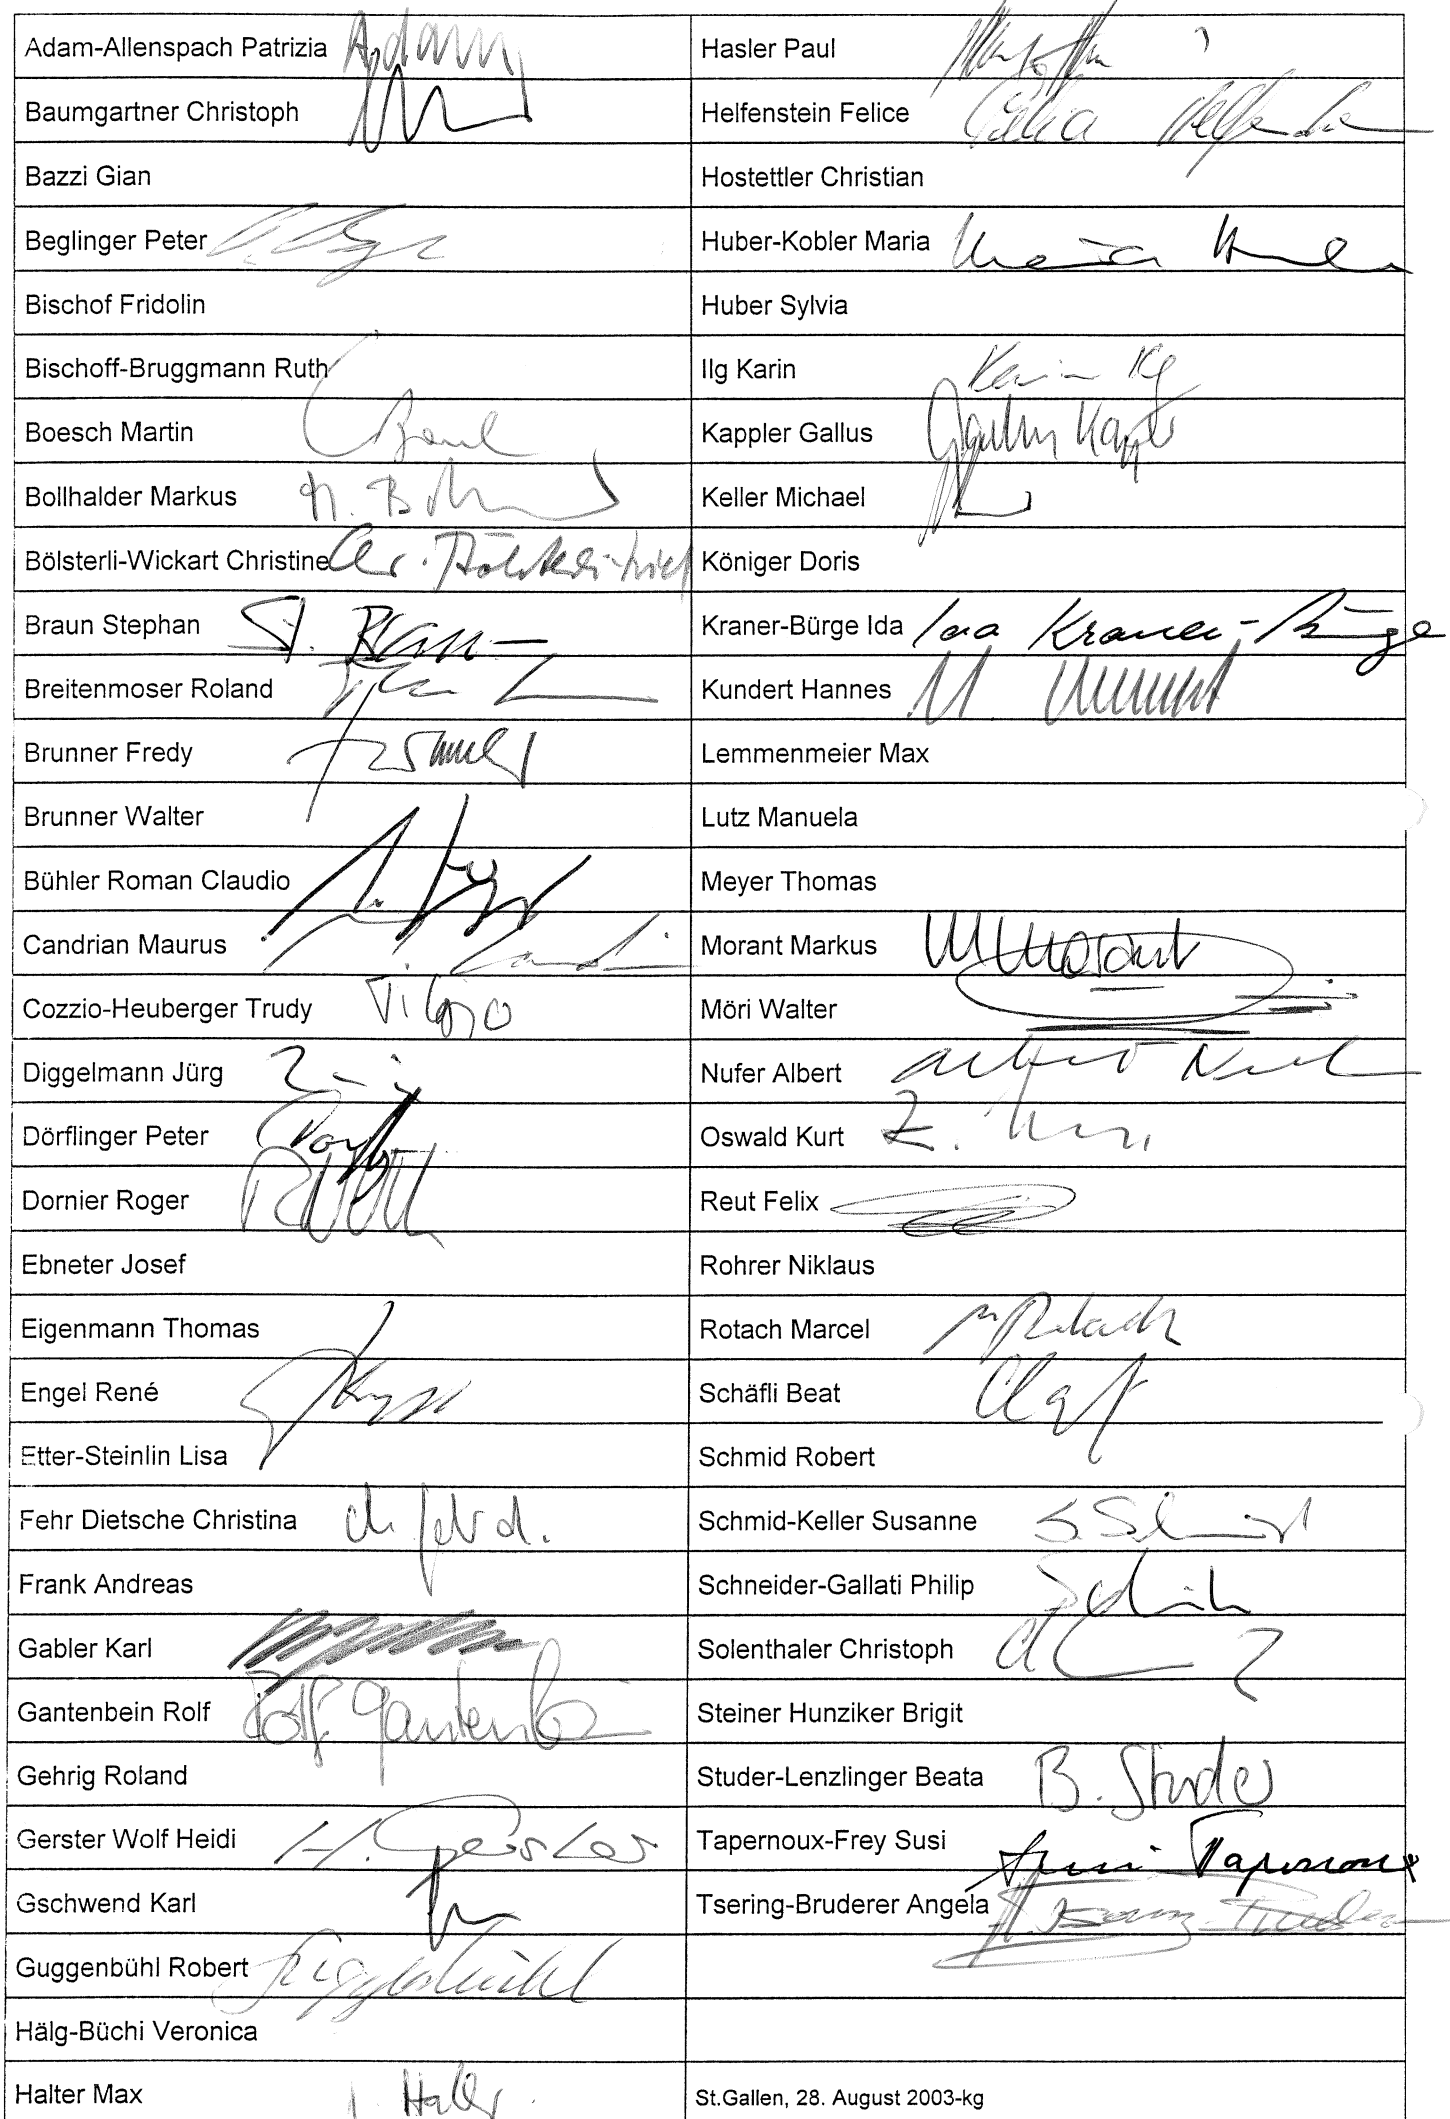 Adam-Allenspach Patrizia Adam
Baumgartner Christoph
Bazzi Gian
Beglinger Peter
Bischof Fridolin
Bischoff-Bruggmann Ruth
Boesch Martin
Bollhalder Markus
Bölsterli-Wickart Christine
Braun Stephan
Breitenmoser Roland
Brunner Fredy
Brunner Walter
Bühler Roman Claudio
Candrian Maurus
Cozzio-Heuberger Trudy
Diggelmann Jürg
Dörflinger Peter
Dornier Roger
Ebneter Josef
Eigenmann Thomas
Engel René
Etter-Steinlin Lisa
Fehr Dietsche Christina
Frank Andreas
Gabler Karl
Gantenbein Rolf Rolf Gantenbein
Gehrig Roland
Gerster Wolf Heidi H. Gerster
Gschwend Karl
Guggenbühl Robert
Hälg-Büchi Veronica
Halter Max
Hasler Paul
Helfenstein Felice
Hostettler Christian
Huber-Kobler Maria
Huber Sylvia
Ilg Karin Karin Ilg
Kappler Gallus
Keller Michael
Königer Doris
Kraner-Bürge Ida Ida Kraner-Bürge
Kundert Hannes
Lemmenmeier Max
Lutz Manuela
Meyer Thomas
Morant Markus M Morant
Möri Walter
Nufer Albert
Oswald Kurt
Reut Felix
Rohrer Niklaus
Rotach Marcel M Rotach
Schäfli Beat
Schmid Robert
Schmid-Keller Susanne S. Schmid
Schneider-Gallati Philip
Solenthaler Christoph
Steiner Hunziker Brigit
Studer-Lenzlinger Beata B. Studer
Tapernoux-Frey Susi Susi Tapernoux
Tsering-Bruderer Angela
St.Gallen, 28. August 2003-kg